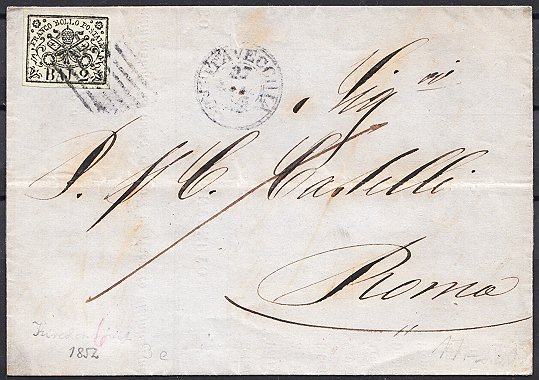 FRANCO BOLLO POSTALE
BAI. 2
CIVITAVECCHIA
22
Sig.ri
P. N C. Castelli
Roma
1852
3e